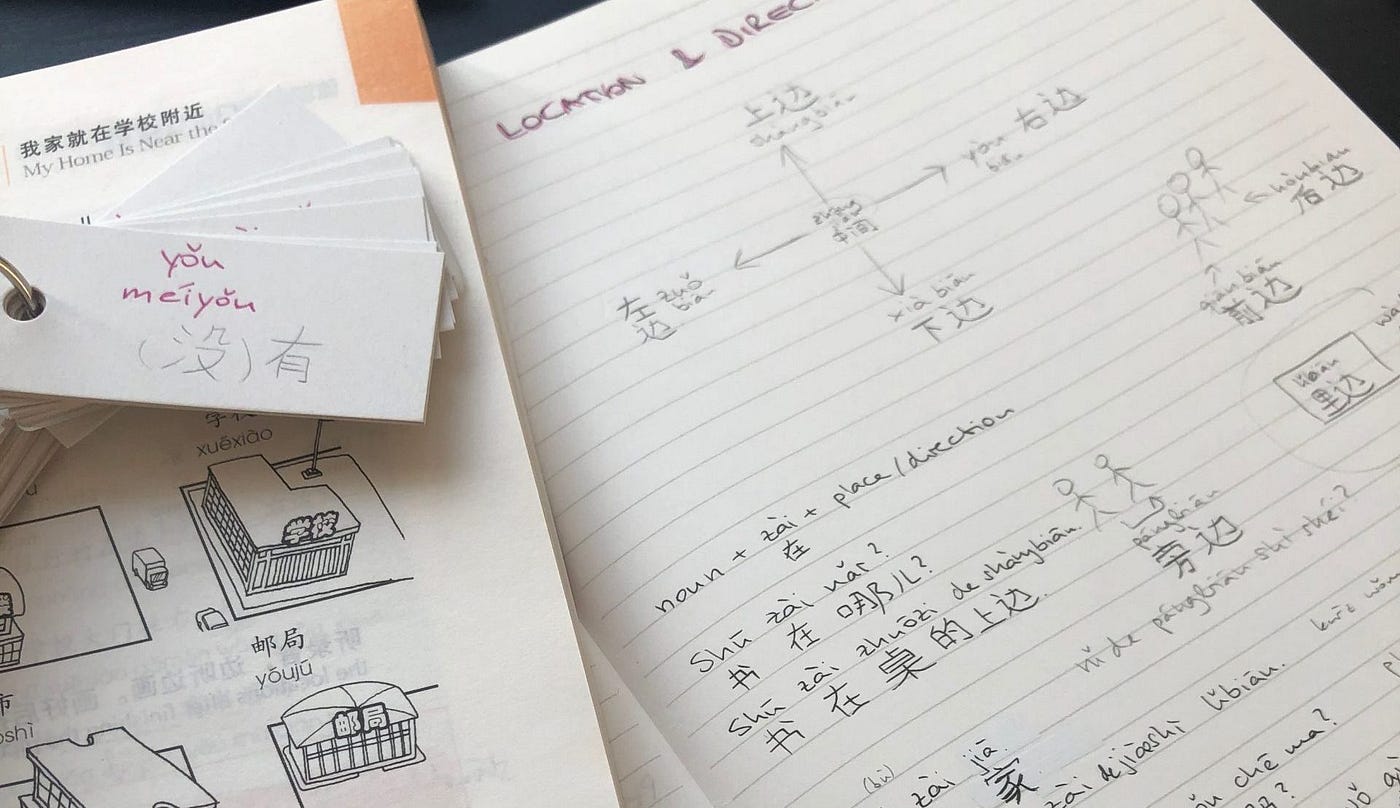 我家就在学校附近
My Home Is Near the
yǒu
méiyǒu
(没)有
xuéxiào
学校
邮局
yóujú
邮局
市
shì
LOCATION & DIREC
上边
shàngbiān
yòu 右边
biān
中间
左 zuǒ
边 biān
xià biān
下边
hòubian
后边
qiánbiān
前边
lǐbiān
里边
noun + zài + place/direction
在
Shū zài nǎr?
书 在 哪儿?
Shū zài zhuōzi de shàngbiān.
书 在 桌 的 上边.
pángbiān
旁边
nǐ de pángbiān shì shéi?
(bù)
zài jiā.
家
zài de jiàoshì lǐbiān.
chē ma?